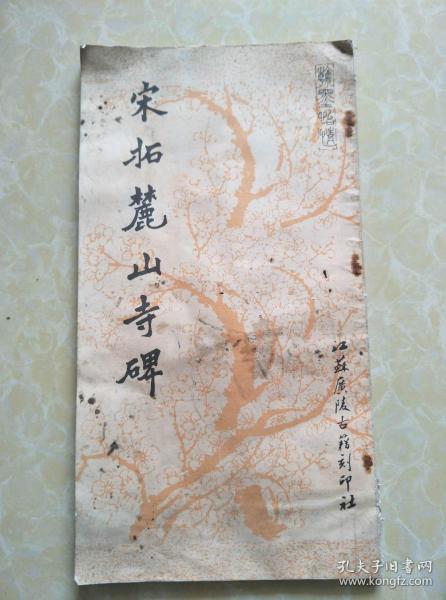 翰墨怡情
宋拓麓山寺碑
江蘇廣陵古籍刻印社
孔夫子旧书网
www.kongfz.com